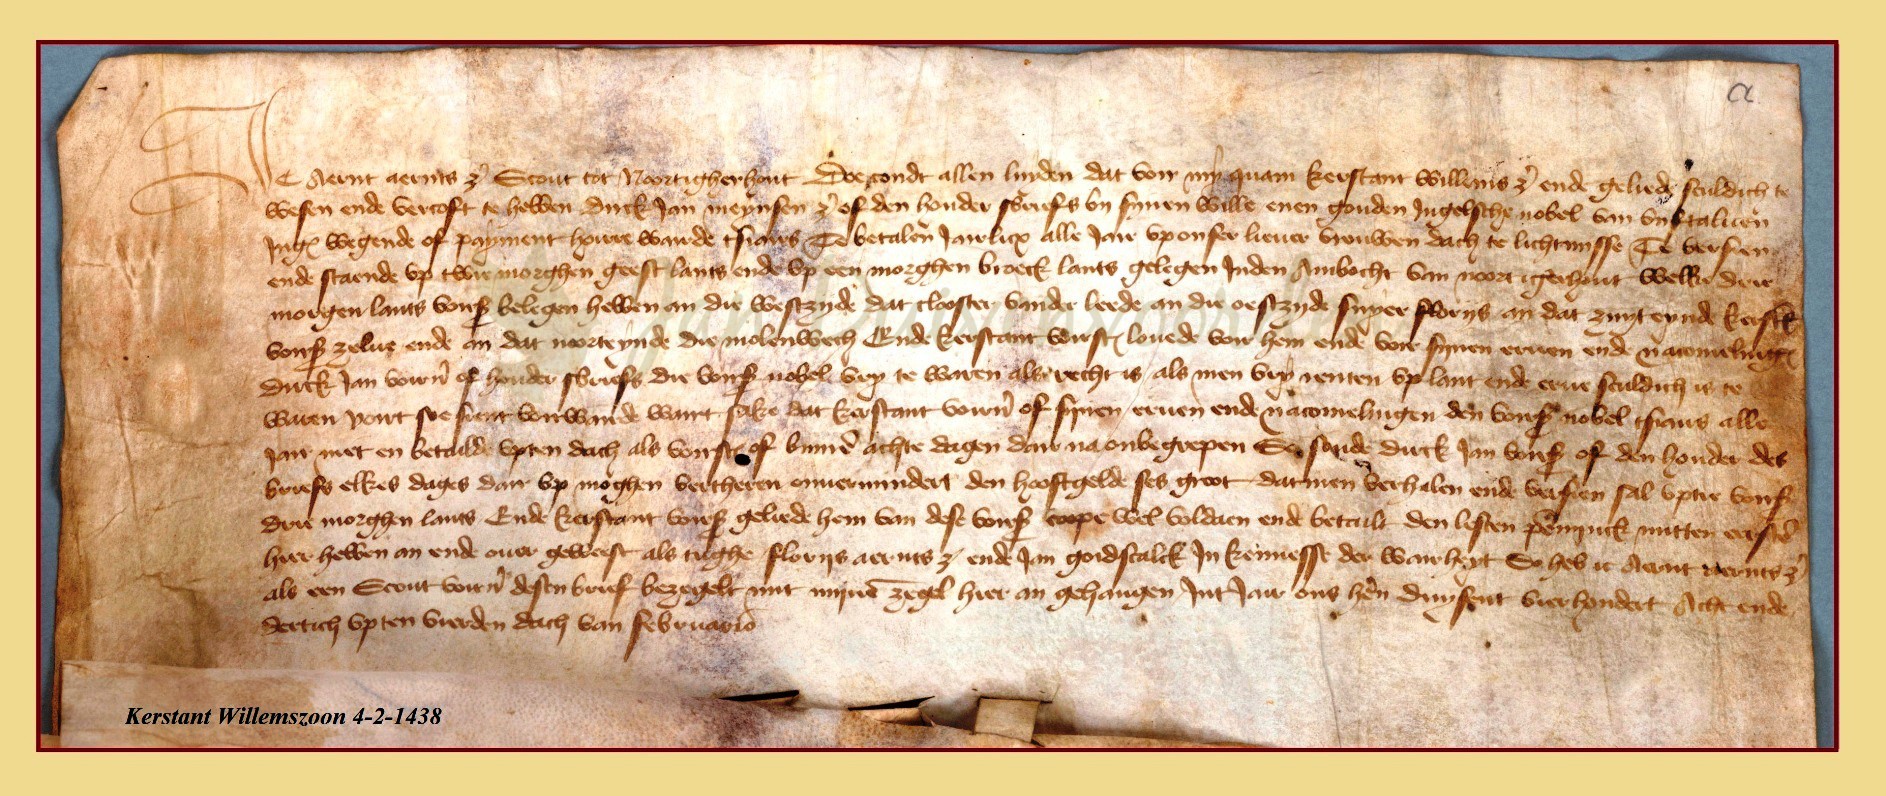 a
Ic Aernt aernts zn Scout tot Noortigherhout Doe condt allen luyden dat voir my quam kerstant willems zn ende geliede sculdich te
wesen ende vercoft te hebben Dirck Jan meynsen zn of den houder sbriefs bi sinen wille enen gouden Ingelsche nobel van
wegende of payment hoirre waerde tsiaers Te betalen Jairlicx alle Jair up onser liever vrouwen dach te lichtmisse Te versien
ende staende up twie morghen geest lants ende up een morghen broeck lants gelegen Inden Ambocht van noortigerhout welke drie
morgen lants vors belegen hebben an die westzyde dat clooster vander leede an die oestzyde symer florijs an dat zuyteynde kerst
vors zelve ende an dat noorteynde die molenwech Ende kerstant vorst lovede voir hem ende voir sinen erven ende nacomeling
Dirck Jan voirn of houder sbriefs die vors nobel vry te waren als recht is als men vry renten up lant ende erve sculdich is te
waren voirt voirwaerde wairt sake dat kerstant voirn of sinen erven ende nacomelingen den vors nobel tsiaers alle
Jair niet en betailde upten dach als vorst of binnen achte dagen dair na onbegrepen So soude dirck Jan vors of den houder des
briefs elkes dages dair up moghen verteren onvermindert den hooftgelde ses groot datmen verhalen ende versien sal uptie vors
drie morghen lants Ende kerstant vors geliede hem van dese vors coope wel voldaen ende betailt den lesten penninck mitten eersten
hier hebben an ende over geweest als tughe florijs aernts z ende Jan goidscalck In kennesse der wairheyt So heb ic Aernt aernts zn
als een Scout voirn desen brief bezegelt mit minen zegel hier an gehangen Int Jair ons hern duysent vierhondert Acht ende
dertich upten vierden dach van februario
Kerstant Willemszoon 4-2-1438